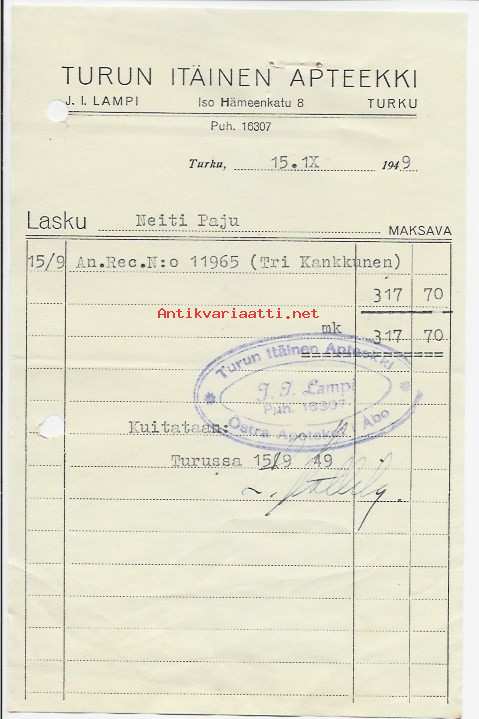 TURUN ITÄINEN APTEEKKI
J. I. LAMPI Iso Hämeenkatu 8 TURKU
Puh. 16307
Turku, 15.IX 1949
Lasku Neiti Paju MAKSAVA
15/9 An.Rec.N:o 11965 (Tri Kankkunen)
317 70
Antikvariaatti.net
mk 317 70
Turun Itäinen Apteekki
J. I. Lampi
Puh. 16307
Östra Apoteket i Åbo
Kuitataan:
Turussa 15/9 49